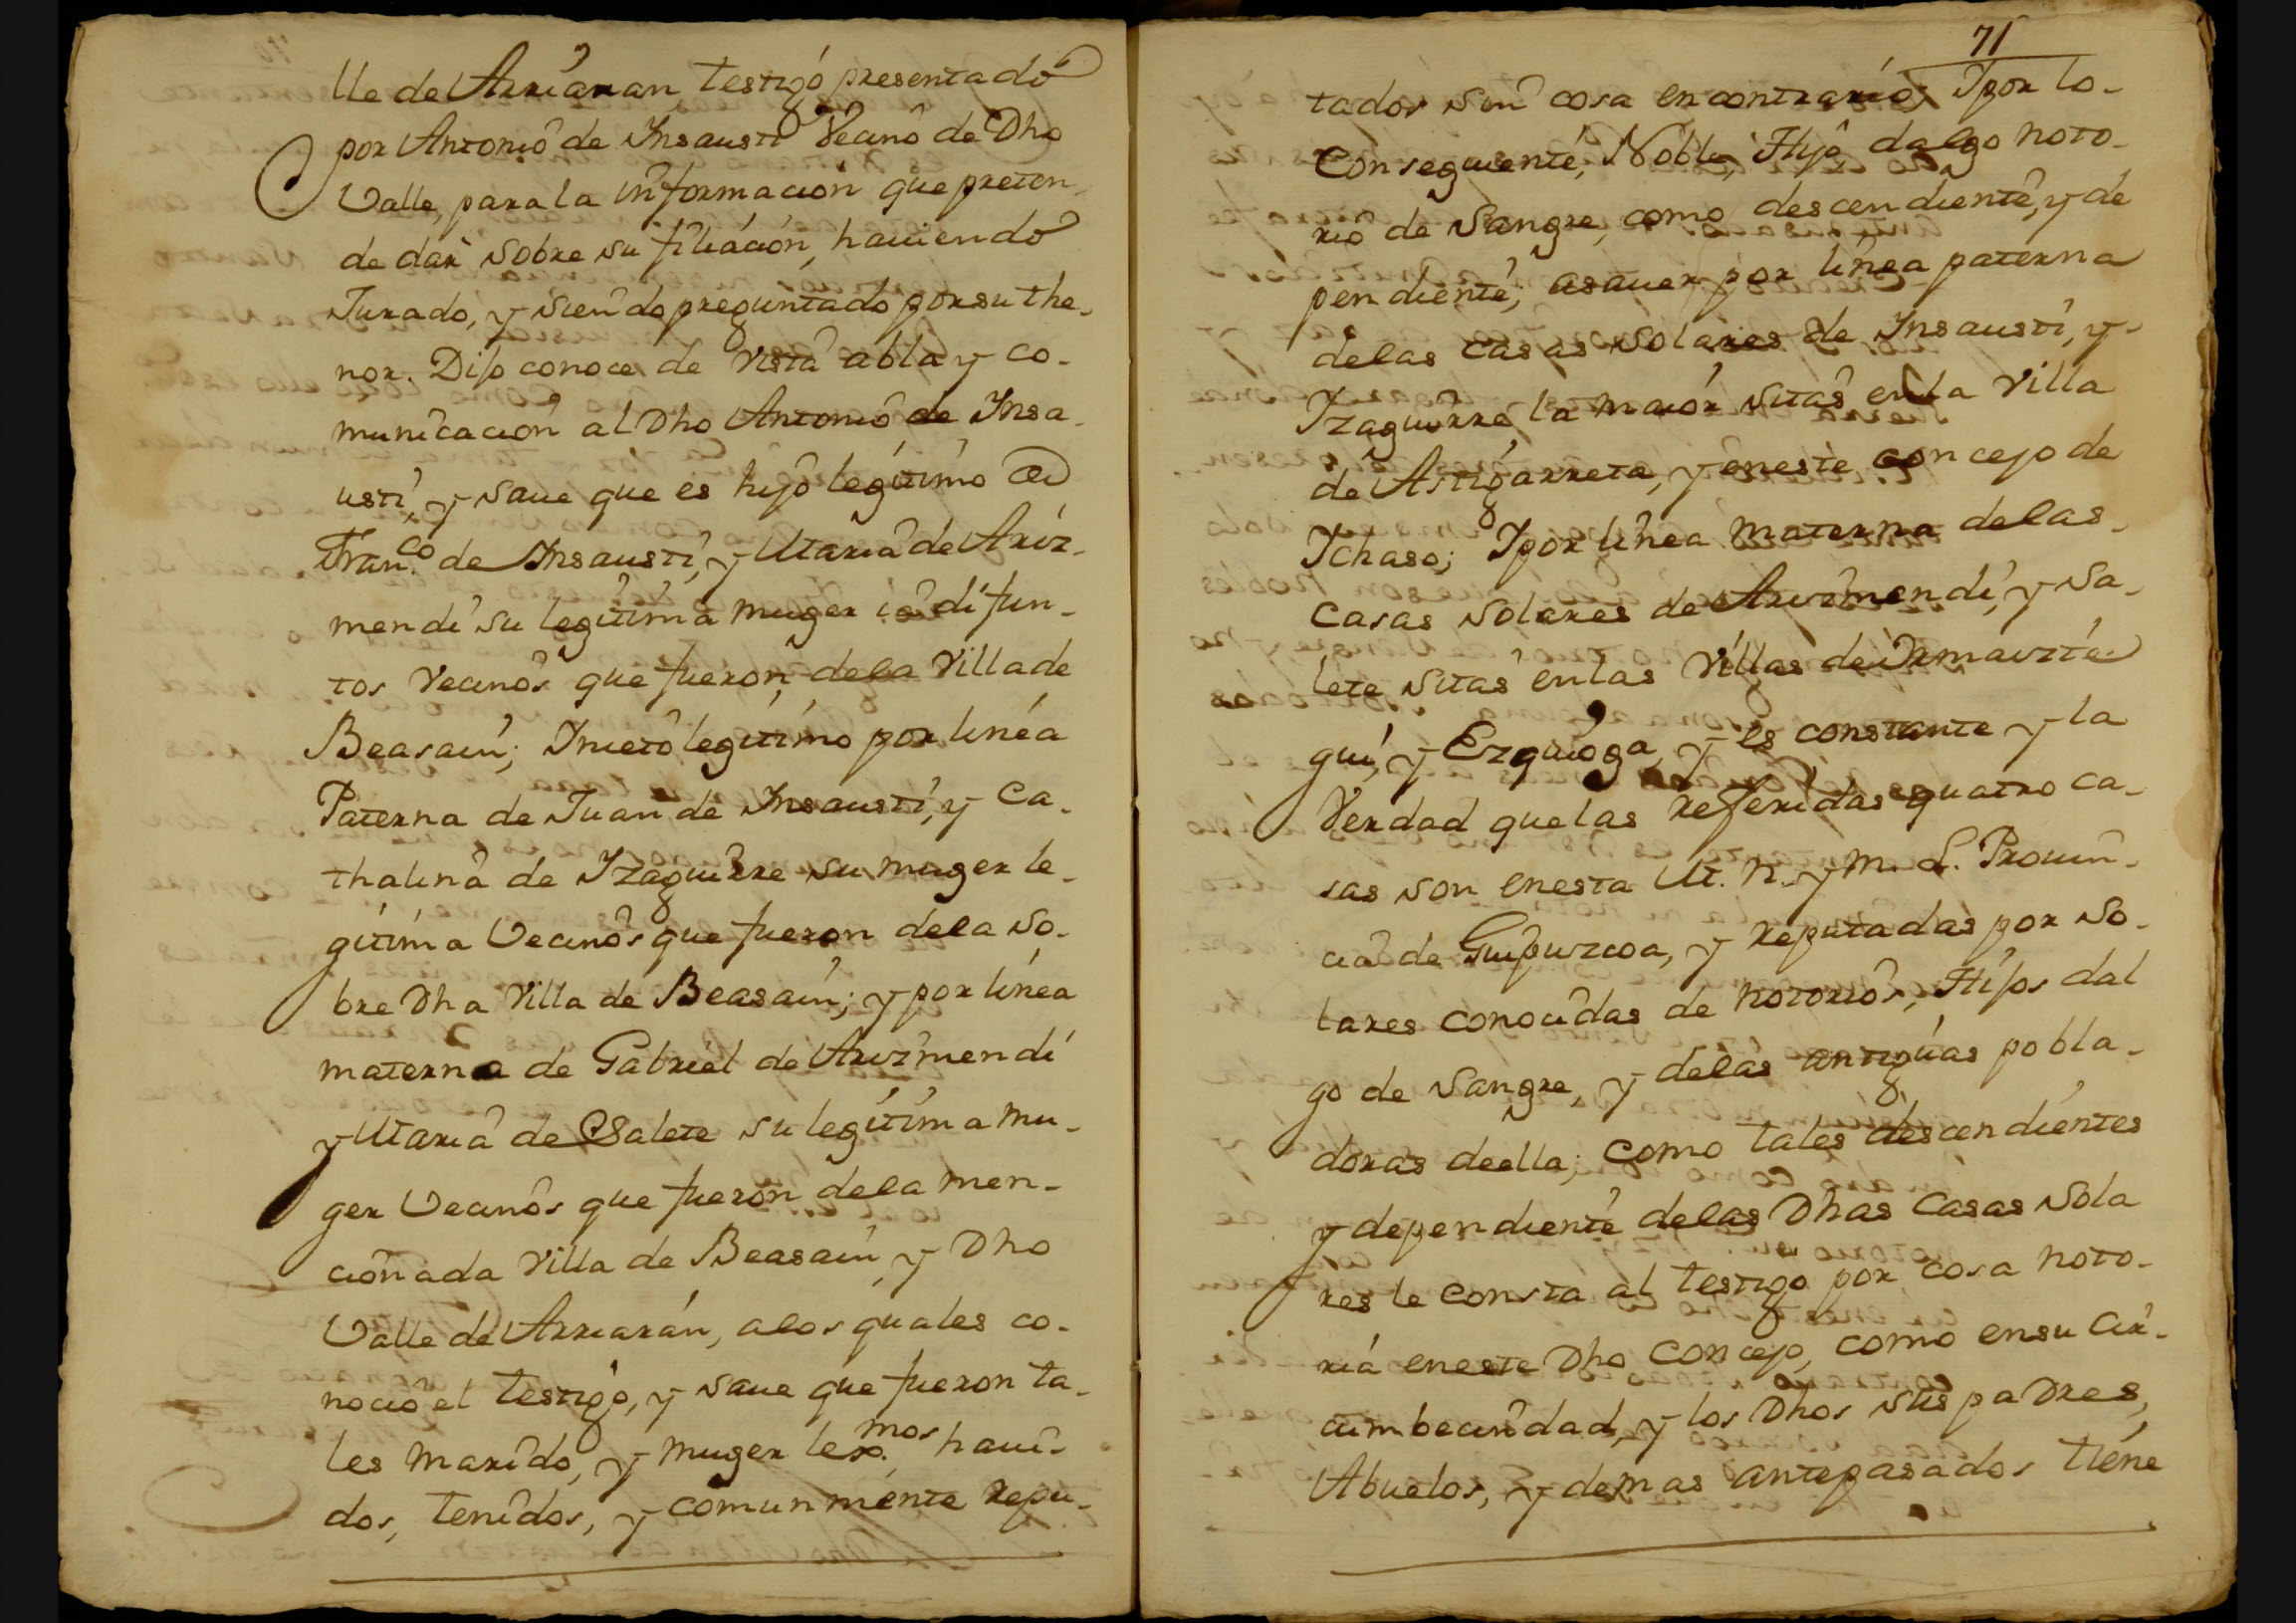 lle de Arriaran, testigo presentado
por Antonio de Insausti Vecino de Dho
Valle, para la informacion que preten-
de dar sobre su filiación, haviendo
Jurado, y siendo preguntado por su the-
nor. Dijo conoce de vista abla y co-
municacion al Dho Antonio de Insa-
usti, y saue que es hijo legitimo de
Fran.co de Insausti, y Maria de Ariz-
mendi su legitima muger ia difun-
tos Vecinos que fueron de la Villa de
Beasain; Inieto legitimo por linéa
Paterna de Juan de Insausti, y Ca-
thalina de Izaguirre su muger le-
gitima Vecinos que fueron dela so-
bre Dha Villa de Beasain; y por linea
materna de Gabriel de Arizmendi
y Maria de Salete su legitima mu-
ger Vecinos que fueron dela men-
cionada Villa de Beasain, y Dho
Valle de Arriarán, alos quales co-
nocio el testigo, y saue que fueron ta-
les marido, y muger lexmos. havi-
dos, tenidos, y comunmente repu-
71
tados sin cosa en contrario; Ipor lo-
Conseguiente, Noble, Hijo dalgo noto-
rio de Sangre, como descendiente, y de
pendiente; asauer por linea paterna
delas casas solares de Insausti, y-
Izaguirre la maior sitas en la Villa
de Astigarreta, y eneste concejo de
Ichaso; Ipor linea materna delas-
Casas solares de Arizmendi, y Sa-
lete sitas en las Villas de Ormaizte
gui, y Ezquioga, y es constante y la
Verdad que las referidas quatro ca-
sas son enesta M. N. y M. L. Provin-
cia de Guipuzcoa, y reputadas por so-
lares conocidas de notorios, Hijos dal
go de Sangre, y delas antiguas pobla-
doras deella; como tales descendientes
y dependiente delas Dhas Casas Sola
res le consta al testigo por cosa noto-
ria eneste Dho Concejo, como ensu cir-
cumbecindad, y los Dhos sus padres,
Abuelos, y demas antepasados tiene